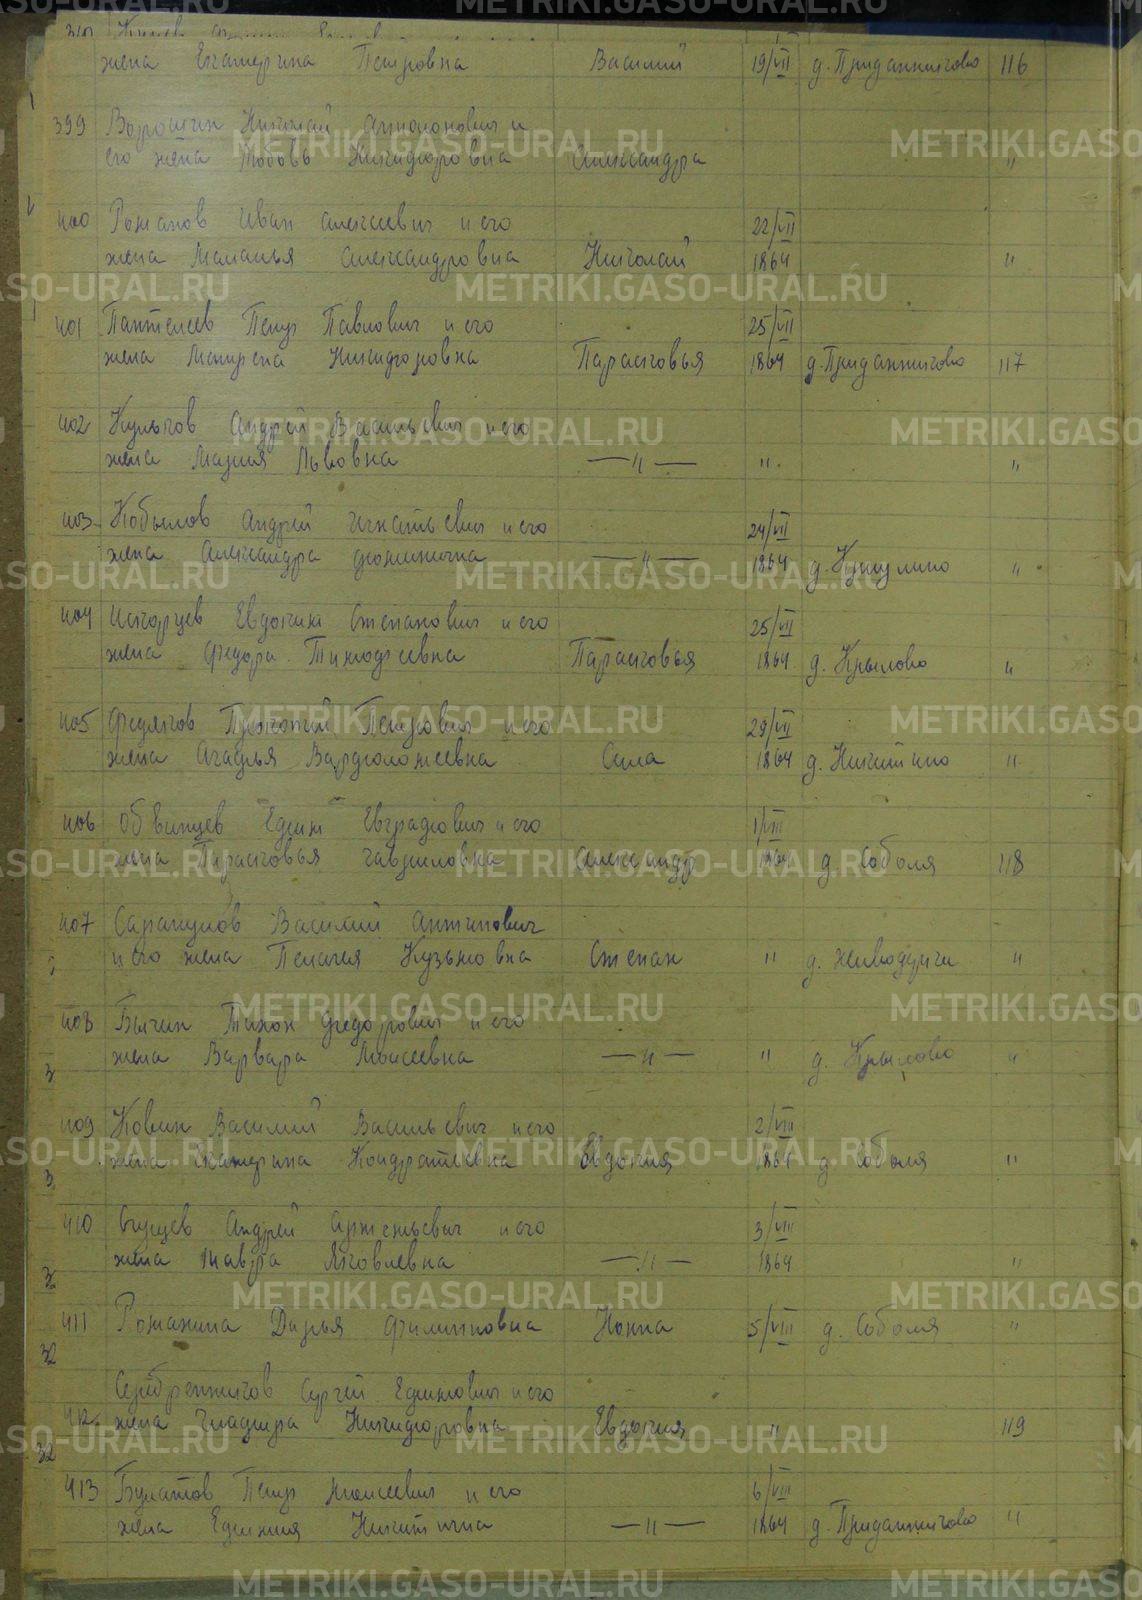 жена Екатерина Петровна Василий 19/VII д. Приданниково 116
399 Николай и
его жена Любовь Никифоровна Александра "
400 Рожанов Иван Алексеевич и его 22/VII
жена Маланья Александровна Николай 1864 "
401 Пантелеев Петр Павлович и его 25/VII
жена Никифоровна Парасковья 1864 д. Приданниково 117
402 Кулыков Андрей Васильевич и его
жена Мария Львовна —"— " "
403 Кобылов Андрей Игнатьевич и его 24/VII
жена Александра Фоминична —"— 1864 д. "
404 Евдоким Степанович и его 25/VII
жена Федора Тимофеевна Парасковья 1864 д. Крылово "
405 Федяков Прокопий Петрович и его 29/VII
жена Агафья Варфоломеевна Сила 1864 д. Никиткино "
406 Обвинцев Ефим Евграфович и его 1/VIII
жена Парасковья Гавриловна Александр 1864 д. Соболя 118
407 Сарапулов Василий Антипович
и его жена Пелагия Кузьмовна Степан " д. "
408 Бычин Тихон Федорович и его
жена Варвара Моисеевна —"— " д. Крылово "
409 Ковин Василий Васильевич и его 2/VIII
жена Екатерина Кондратьевна Евдокия 1864 д Соболя "
410 Андрей Артемьевич и его 3/VIII
жена Мавра Яковлевна —"— 1864 "
411 Рожанина Дарья Филипповна Нонна 5/VIII д. Соболя "
Серебренников Сергей Ефимович и его
412 жена Глафира Никифоровна Евдокия " 119
413 Булатов Петр Моисеевич и его 6/VIII
жена Ефимия Никитична —"— 1864 д. Приданниково "
METRIKI.GASO-URAL.RU